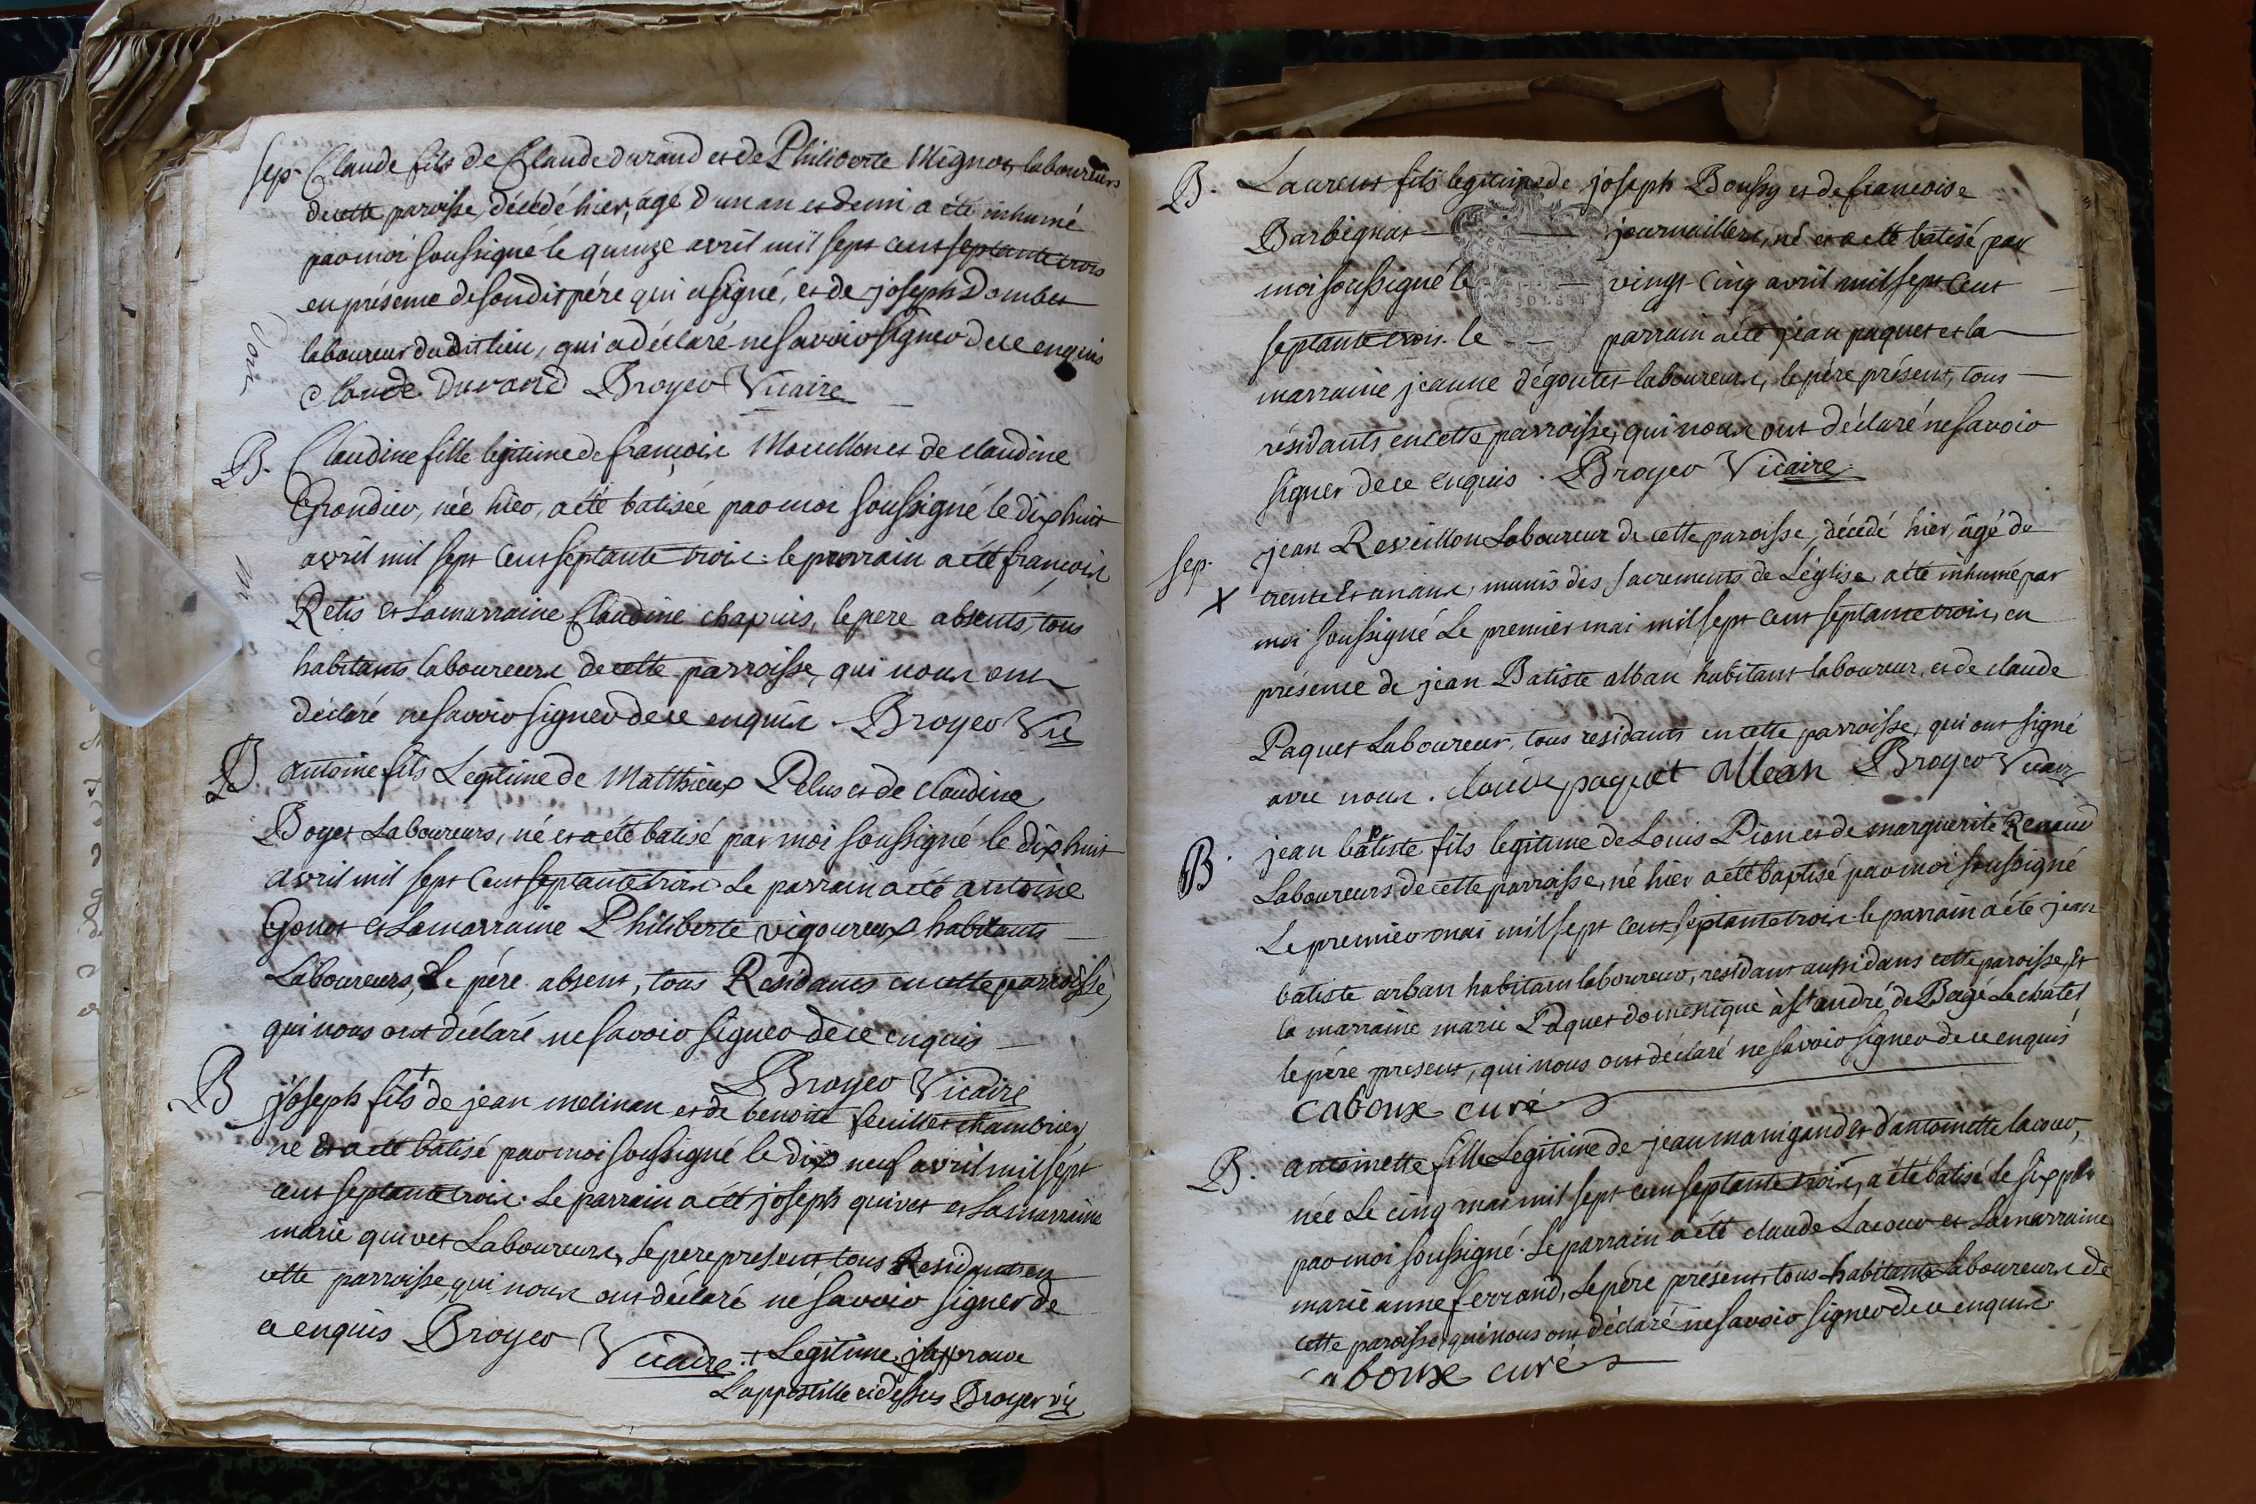 Sep. Claude fils de Claude durand et de Philiberte Mignot, laboureurs
de cette paroisse, décédé hier, âgé d'un an et demi a été inhumé
par moi soussigné le quinze avril mil sept cent septante trois
en présence de son dit père qui a signé, et de joseph Dombet
laboureur du dit lieu, qui a déclaré ne savoir signer de ce enquis
Claude durand Broyer Vicaire
B. Claudine fille legitime de françois Morellon et de claudine
Grondier, née hier, a été batisée par moi soussigné le dix huit
avril mil sept cent septante trois. le parrain a été françois
Retis et La marraine Claudine chapuis, le pere absents, tous
habitants laboureurs de cette parroisse, qui nous ont
déclaré ne savoir signer de ce enquis. Broyer Vic
B. antoine fils Legitime de Matthieux Pelus et de claudine
Boyer Laboureurs, né et a été batisé par moi soussigné le dix huit
avril mil sept cent septante trois Le parrain a été antoine
Gonot et La marraine Philiberte vigoureux habitants
Laboureurs, Le père absent, tous Residants en cette parroisse,
qui nous ont déclaré ne savoir signer de ce enquis
Broyer Vicaire
B joseph fils + de jean melinan et de benoite feuillet chambrier
né et a été batisé par moi soussigné le dix neuf avril mil sept
cent septante trois. Le parrain a été joseph quivet et La marraine
marie quivet Laboureurs, le pere present tous Residants en
cette parroisse, qui nous ont déclaré ne savoir signer de
ce enquis Broyer Vicaire. + Legitime. j'approuve
L'appostille ci dessus Broyer vic
B. Laurent fils legitime de joseph Boussy et de francoise
Barbignat journailliers, né et a été batisé par
moi soussigné le vingt cinq avril mil sept cent
septante trois. le parrain a été jean paquet et la
marraine jeanne dégoutet laboureurs, le père présent, tous
résidants en cette parroisse, qui nous ont déclaré ne savoir
signer de ce enquis. Broyer Vicaire
Sep. jean Reveillon Laboureur de cette paroisse, décédé hier, âgé de
X trente et un ans, munis des sacrements de Léglise, a été inhumé par
moi soussigné Le premier mai mil sept cent septante trois, en
présence de jean Batiste alban habitant laboureur, et de claude
Paquet Laboureur, tous residants en cette parroisse, qui ont signé
avec nous. Claude paquet Alban Broyer Vicaire
B. jean batiste fils legitime de Louis Pion et de marguerite Renaud
Laboureurs de cette parroisse, né hier a été baptisé par moi soussigné
Le premier mai mil sept cent septante trois le parrain a été jean
batiste arban habitant laboureur, residant aussi dans cette paroisse, et
la marraine marie Paquet domestique à St andré de Bagé Le chatel
le père present, qui nous ont déclaré ne savoir signer de ce enquis
caboux curé
B. antoinette fille Legitime de jean manigand et d'antoinette lacour,
née Le cinq mai mil sept cent septante trois, a été batisé le six par
par moi soussigné. Le parrain a été claude Lacour et La marraine
marie anne ferrand, Le père présent tous habitants Laboureurs de
cette paroisse, qui nous ont déclaré ne savoir signer de ce enquis.
caboux curé